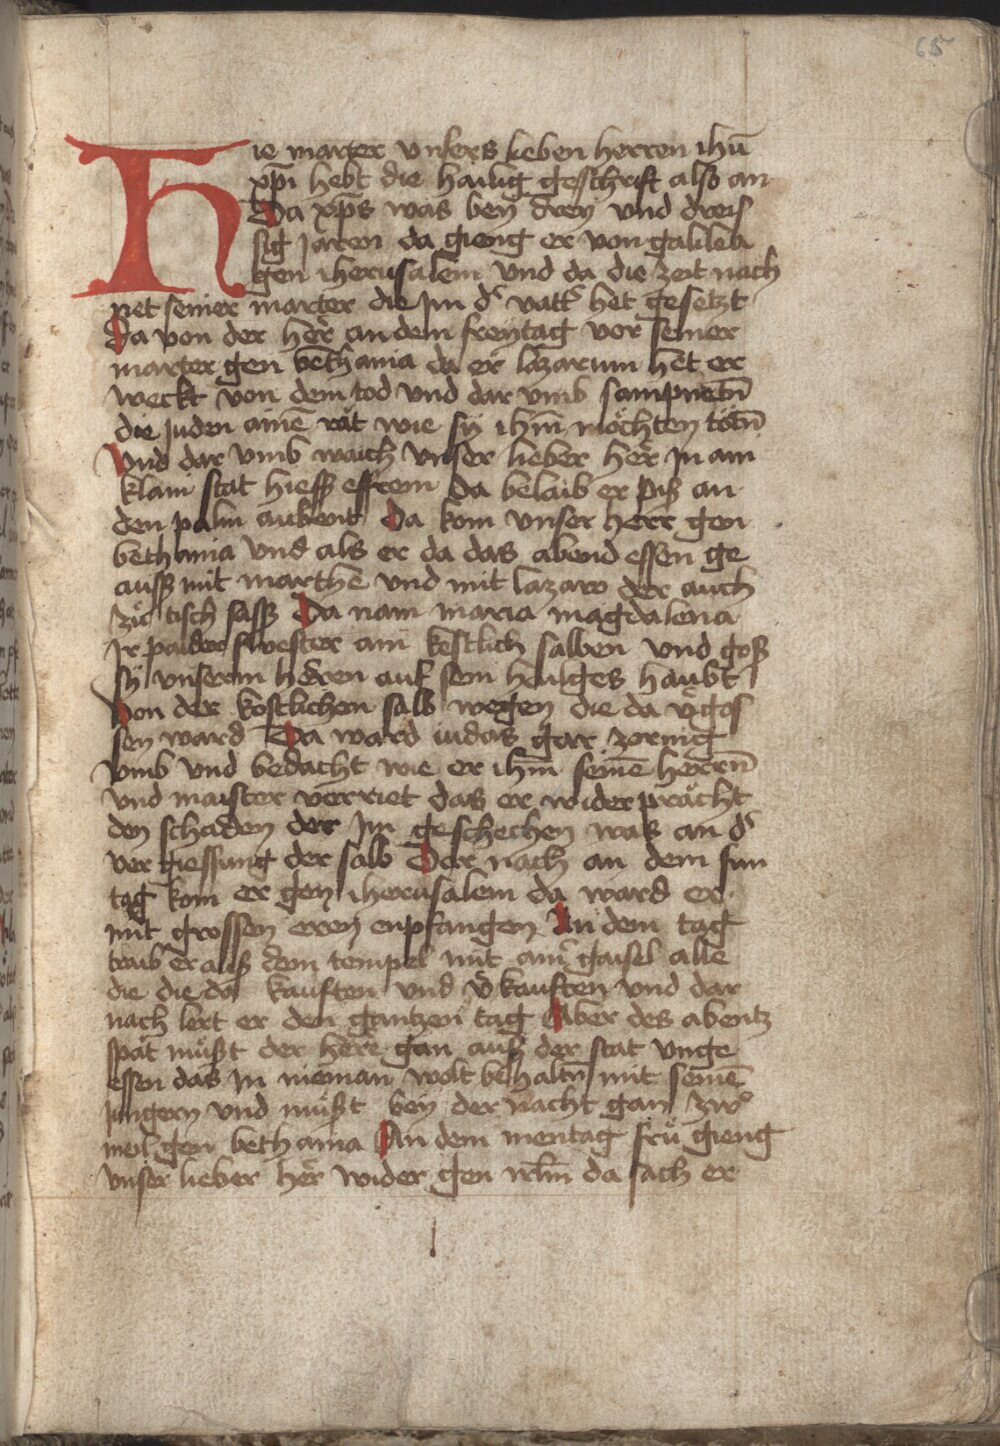 65
Hie marter vnsers lieben herren ihū
xpī hebt die hailig geschrift also an
Da xp̄s was bey drey vnd dreis
sig Jaren da gieng er von galilea
gen iherusalem vnd da die zeit nach
net seiner marter die Im d' vatt' het gesetzt
Da von der her an dem freytag vor seiner
marter gen bethania da er lazarum het er
werkt von dem tod vnd dar vmb sampnetn̄
die Juden ainē rät wie sy ihm̄ möchten tötn̄
Vnd dar vmb waich vnser lieber her In ain
klain stat hiess effrem da belaib er piß an
den palm aubent Da kom vnser herr gen
bethania Vnd als er da das abend essen ge
auss mit marthē vnd mit lazaro der auch
zů tisch sass Da nam maria magdalena
Ir paider swester ain kestlich salben vnd goß
sy vnserm herren auf sein heiliges haubt
Von der kostlichen salb wegen die da v̊gos
sen ward Da ward iudas gar zornig
vmb vnd bedacht wie er ihm̄ seinē herrn̄
vnd maister verriet das er wider prächt
den schaden der Im geschechen was an d'
ver giessung der salb Dar nach an dem sun
tag kom er gen iherusalem da ward er
mit grossen eren enpfangen An dem tag
traib er auß dem tempel mit ain' gaisel alle
die die da kauften vnd v̊kauften vnd dar
nach lert er den gantzen tag Aber des abentz
spät můßt der here gan auß der stat vnge
essen das In nieman wolt behaltn̄ mit seinē
Jungern vnd můßt bey der nacht gan zwo
meil gen bethania An dem mentag frů gieng
vnser lieber her wider gen irlm̄ da sach er